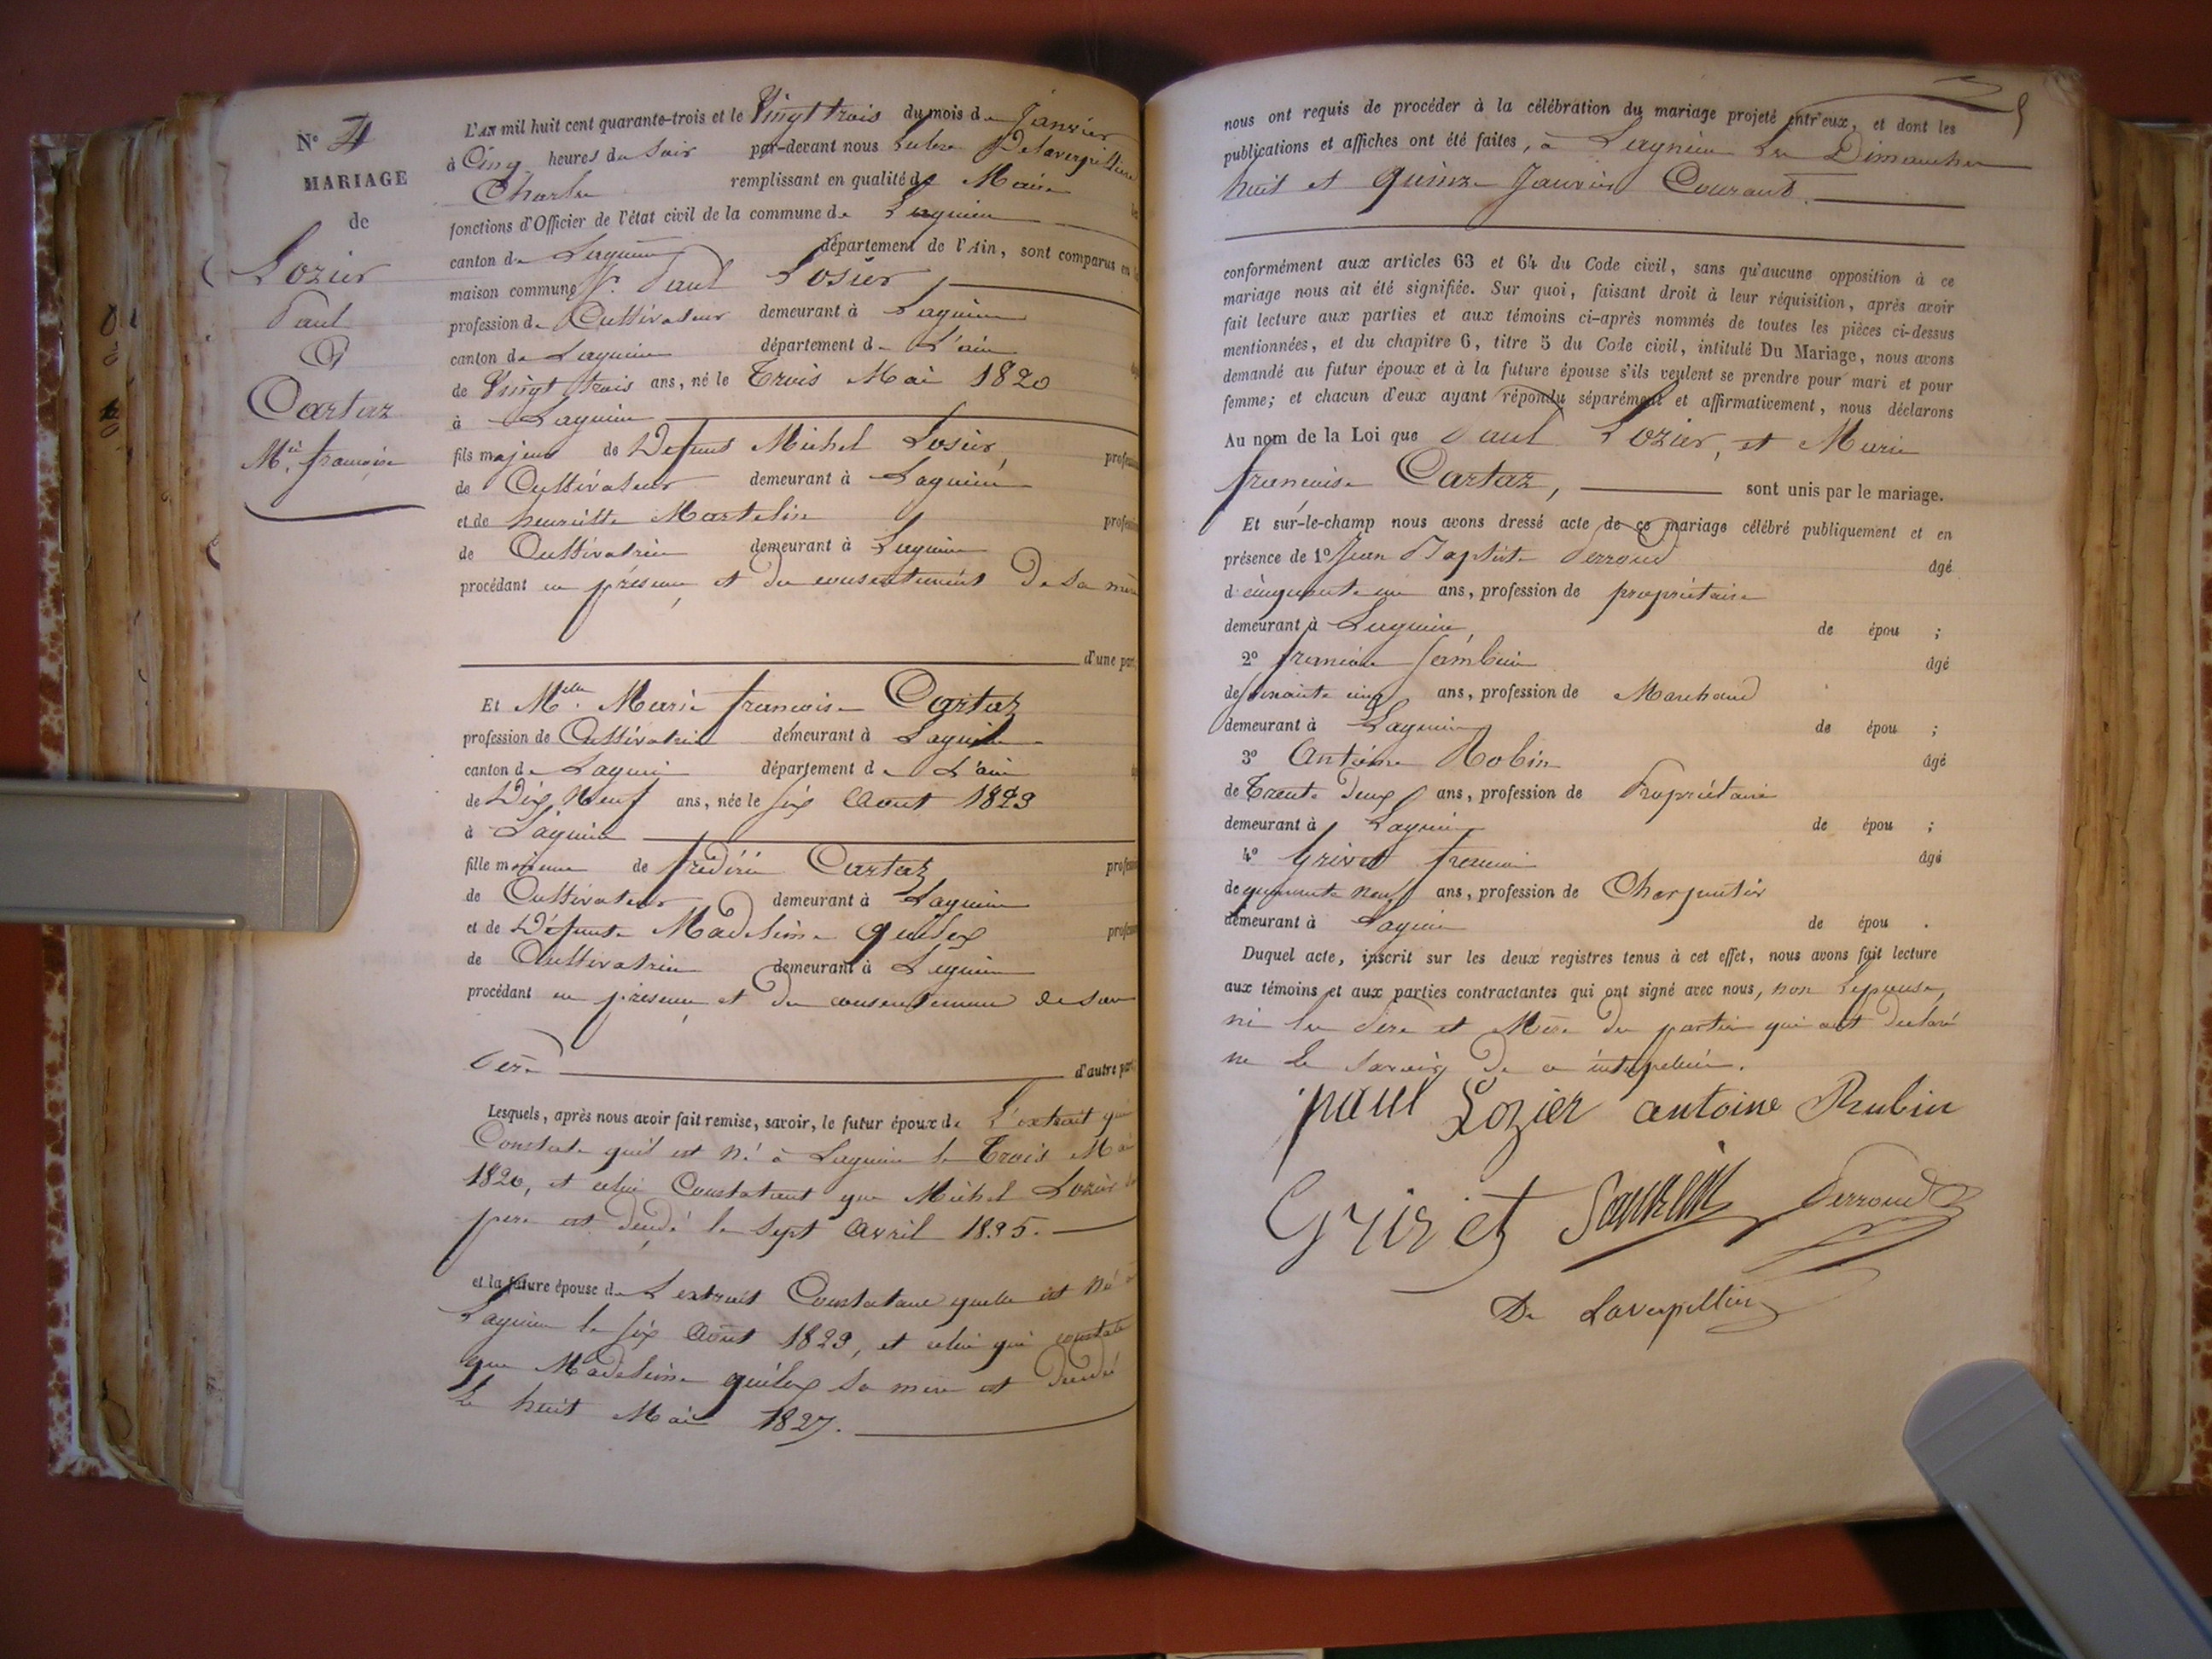 N° 4
MARIAGE
de
Lozier
Paul
&
Cartaz
Mie françoise
L'AN mil huit cent quarante-trois et le Vingt trois du mois de Janvier
à Cinq heures du Soir par-devant nous Delaverpillière
Charles remplissant en qualité de Maire les
fonctions d'Officier de l'état civil de la commune de Lagnieu
canton de Lagnieu département de l'Ain, sont comparus en la
maison commune Sr. Paul Losier,
profession de Cultivateur demeurant à Lagnieu
canton de Lagnieu département de L'ain
de Vingt trois ans, né le Trois Mai 1820
à Lagnieu
fils majeur de Defunt Michel Losier, profession
de Cultivateur demeurant à Lagnieu
et de henriette Martelin profession
de Cultivatrice demeurant à Lagnieu
procédant en présence et du consentement De Sa mère
d'une part,
Et Melle Marie francoise Cartaz
profession de Cultivatrice demeurant à Lagnieu
canton de Lagnieu département de L'ain
de Dix Neuf ans, née le Six Aout 1823
à Lagnieu
fille mineure de frédéric Cartaz profession
de Cultivateur demeurant à Lagnieu
et de Défunte Madeleine quilex profession
de Cultivatrice demeurant à Lagnieu
procédant en présence et du consentement de son
Père d'autre part,
Lesquels, après nous avoir fait remise, savoir, le futur époux de L'extrait qui
Constate qu'il est Né à Lagnieu le Trois Mai
1820, et celui Constatant que Michel Lozier Son
pere est décédé le Sept Avril 1835.
et la future épouse de L'extrait Constatant quelle est Née à
Lagnieu le Six Août 1823, et celui qui constate
que Madeleine quilex Sa mere est décédée
le huit Mai 1827.
nous ont requis de procéder à la célébration du mariage projeté entr'eux, et dont les
publications et affiches ont été faites, à Lagnieu Les Dimanches
huit et quinze Janvier Courant.
conformément aux articles 63 et 64 du Code civil, sans qu'aucune opposition à ce
mariage nous ait été signifiée. Sur quoi, faisant droit à leur réquisition, après avoir
fait lecture aux parties et aux témoins ci-après nommés de toutes les pièces ci-dessus
mentionnées, et du chapitre 6, titre 5 du Code civil, intitulé Du Mariage, nous avons
demandé au futur époux et à la future épouse s'ils veulent se prendre pour mari et pour
femme; et chacun d'eux ayant répondu séparément et affirmativement, nous déclarons
Au nom de la Loi que Paul Lozier, et Marie
françoise Cartaz, sont unis par le mariage.
Et sur-le-champ nous avons dressé acte de ce mariage célébré publiquement et en
présence de 1° Jean Baptiste Perroud âgé
de cinquante un ans, profession de propriétaire
demeurant à Lagnieu, de épou ;
2° âgé
de soixante cinq ans, profession de Marchand
demeurant à Lagnieu de épou ;
3° Antoine Robin âgé
de Trente deux ans, profession de Propriétaire
demeurant à Lagnieu de épou ;
4° Grivet âgé
de quarante neuf ans, profession de Charpentier
demeurant à Lagnieu de épou .
Duquel acte, inscrit sur les deux registres tenus à cet effet, nous avons fait lecture
aux témoins et aux parties contractantes qui ont signé avec nous, non L'épouse,
ni les Père et Mère des parties qui ont déclaré
ne le Savoir De ce interpellés.
paul Lozier antoine Rubin
Grivet Perroud
De Laverpillière